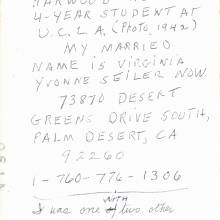 HARWOOD
4-YEAR STUDENT AT
U.C.L.A. (PHOTO, 1942)
MY MARRIED
NAME IS VIRGINIA
YVONNE SEILER NOW.
73870 DESERT
GREENS DRIVE SOUTH,
PALM DESERT, CA
92260
1-760-776-1306
WITH
I was one of two other